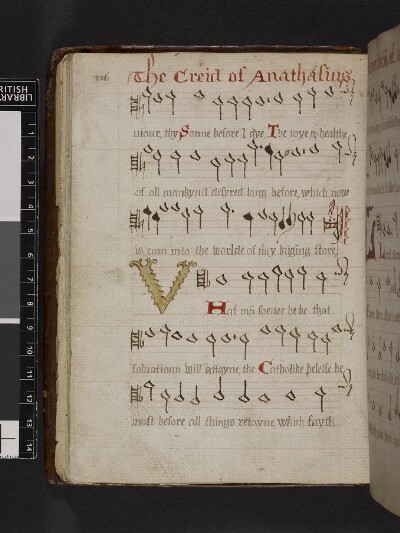 The Creid of Anathasius
uiour, thy Sonne before I dye. The ioye & healthe
of all mankynd desyred long before, which now
is com into the worlde of thy bryging store,
V
Hat mā soeuer he be that
saluatioun will attayne, the Catholike beleife he
most before all things retayne, which fayth
LIBRARY
1
2
3
4
5
6
7
8
9
10
11
12
13
14